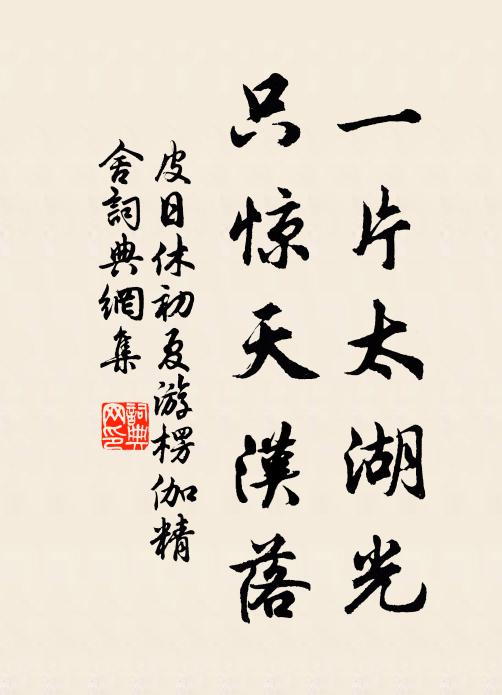 一片太湖光
只惊天漢落
皮日休初夏游楞伽精
舍詞典網集
詞典
网印